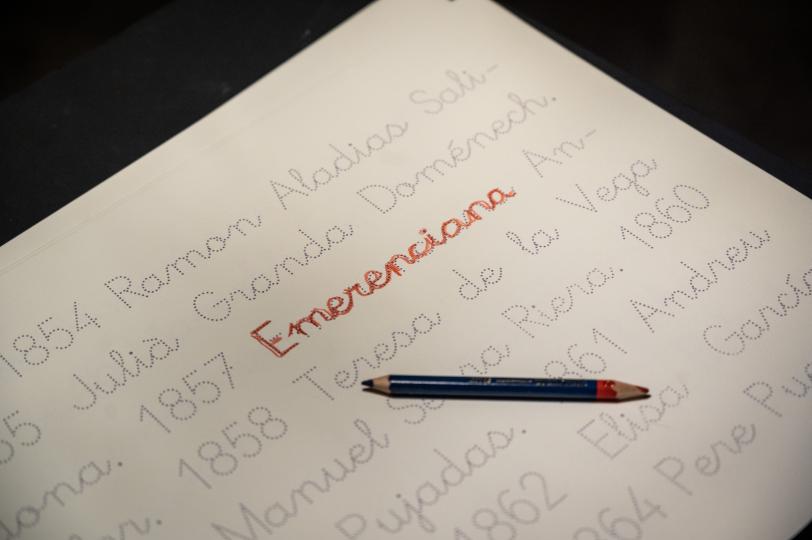 1854 Ramon Aladias Sali-
55 Julià Granda Doménech.
dona. 1857 Emerenciana An-
1858 Teresa de la Vega
Manuel Riera. 1860
Pujadas. 861 Andreu
1862 Elisa García
864 Pere